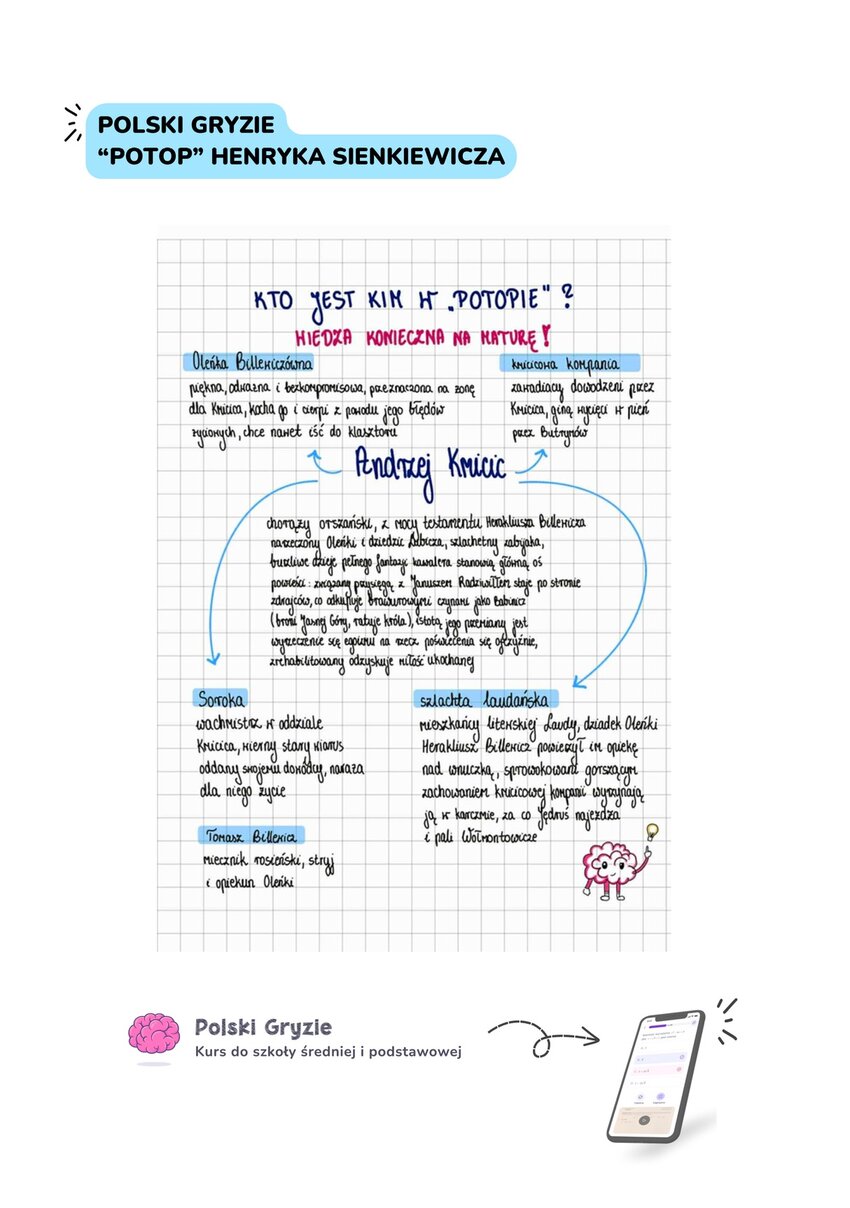 POLSKI GRYZIE
“POTOP” HENRYKA SIENKIEWICZA
KTO JEST KIM W „POTOPIE" ?
WIEDZA KONIECZNA NA MATURĘ!
Oleńka Billewiczówna
piękna, odważna i bezkompromisowa, przeznaczona na żonę
dla Kmicica, kocha go i cierpi z powodu jego błędów
życiowych, chce nawet iść do klasztoru
kmicicowa kompania
zawadiacy dowodzeni przez
Kmicica, giną wycięci w pień
przez Butrymów
Andrzej Kmicic
chorąży orszański, z mocy testamentu Herakliusza Billewicza
narzeczony Oleńki i dziedzic Lubicza, szlachetny zabijaka,
burzliwe dzieje pełnego fantazji kawalera stanowią główną oś
powieści: związany przysięgą z Januszem Radziwiłłem staje po stronie
zdrajców, co odkupuje brawurowymi czynami jako Babinicz
(broni Jasnej Góry, ratuje króla), istotą jego przemiany jest
wyrzeczenie się egoizmu na rzecz poświęcenia się ojczyźnie,
zrehabilitowany odzyskuje miłość ukochanej
Soroka
wachmistrz w oddziale
Kmicica, wierny stary wiarus
oddany swojemu dowódcy, naraża
dla niego życie
szlachta laudańska
mieszkańcy litewskiej Laudy, dziadek Oleńki
Herakliusz Billewicz powierzył im opiekę
nad wnuczką, sprowokowani gorszącym
zachowaniem kmicicowej kompanii wyrzynają
ją w karczmie, za co Jędruś najeżdża
i pali Wołmontowicze
Tomasz Billewicz
miecznik rosieński, stryj
i opiekun Oleńki
Polski Gryzie
Kurs do szkoły średniej i podstawowej